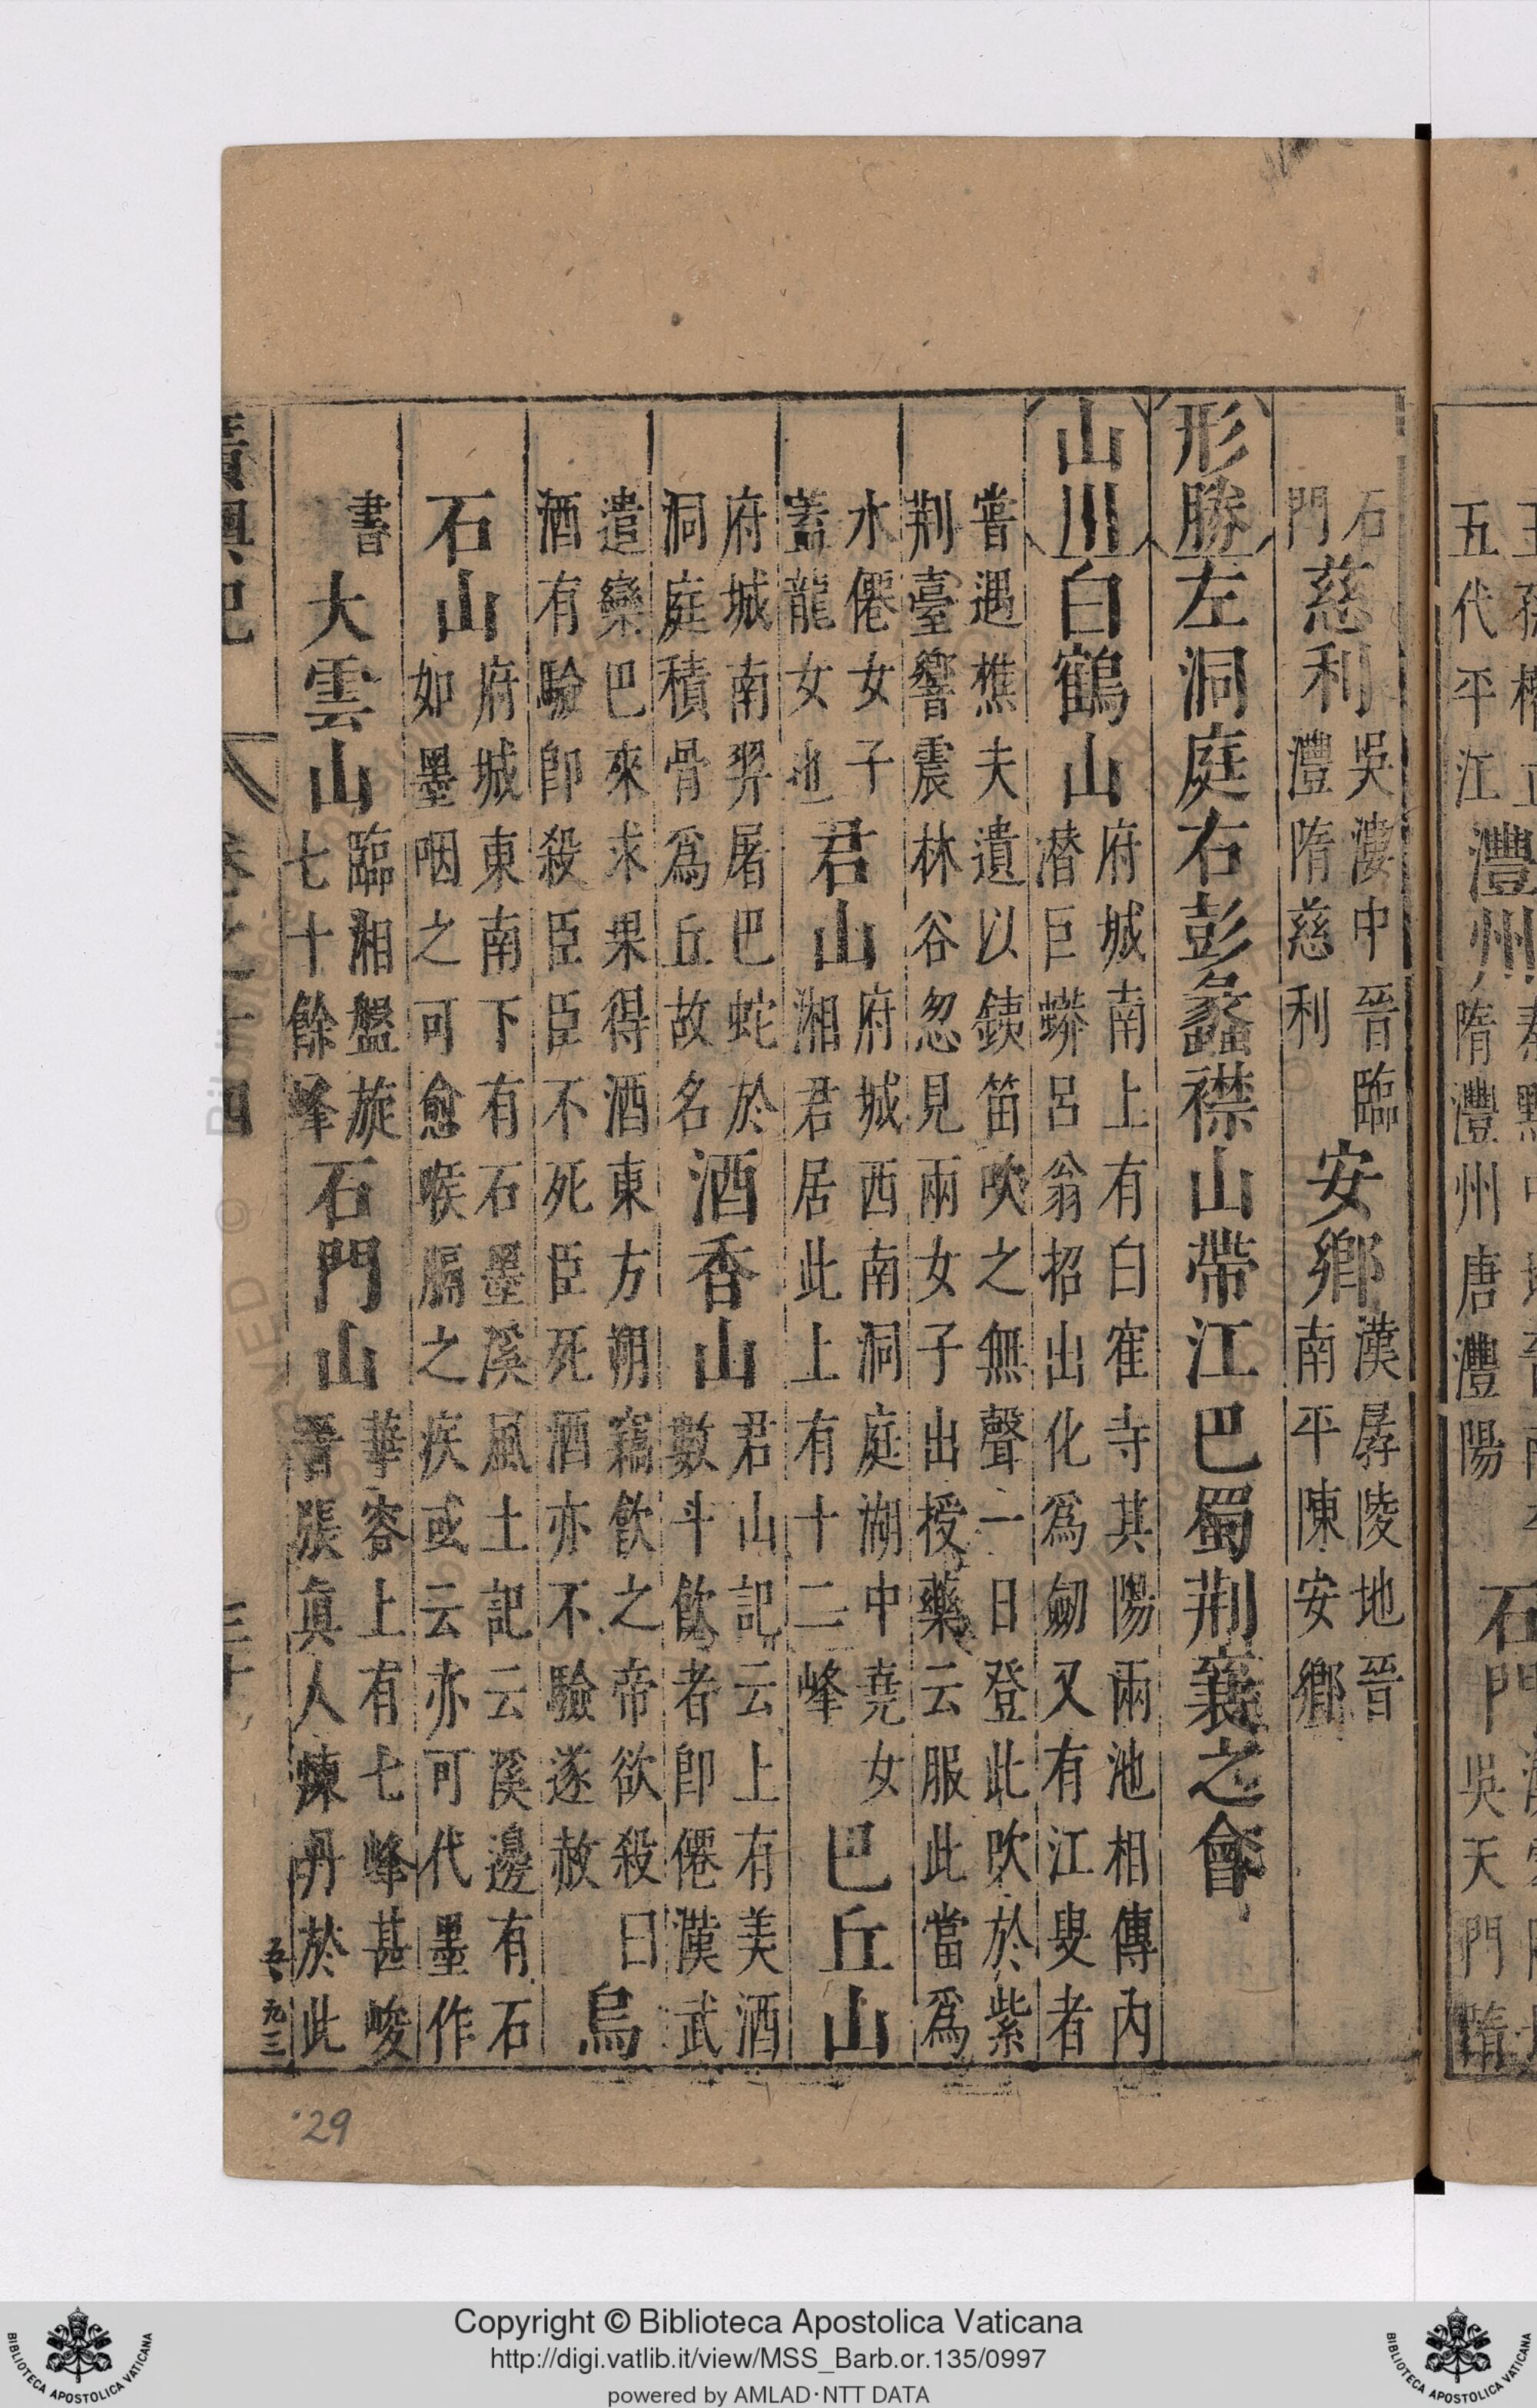 五代平江澧州隋澧州唐澧陽石門吳天門隋
石門慈利吳漊中晉臨澧隋慈利安鄉漢孱陵地晉南平陳安鄉
形勝左洞庭右彭蠡襟山帶江巴蜀荆襄之會
山川白鶴山府城南上有白寉寺其陽兩池相傳内潜巨蟒呂翁招出化爲劒又有江叟者
嘗遇樵夫遺以銕笛吹之無聲一日登此吹於紫荆臺響震林谷忽見兩女子出授藥云服此當爲
水僊女子蓋龍女也君山府城西南洞庭湖中堯女湘君居此上有十二峰巴丘山
府城南羿屠巴蛇於洞庭積骨爲丘故名酒香山君山記云上有美酒數斗飲者卽僊漢武
遣欒巴來求果得酒東方朔竊飲之帝欲殺曰酒有驗卽殺臣臣不死臣死酒亦不驗遂赦烏
石山府城東南下有石墨溪風土記云溪邊有石如墨咽之可愈喉膈之疾或云亦可代墨作
書大雲山臨湘盤旋七十餘峰石門山華容上有七峰甚峻晉張眞人煉丹於此
卷之十四
九三
29
Copyright © Biblioteca Apostolica Vaticana
http://digi.vatlib.it/view/MSS_Barb.or.135/0997
powered by AMLAD·NTT DATA
BIBLIOTECA APOSTOLICA VATICANA
BIBLIOTECA APOSTOLICA VATICANA